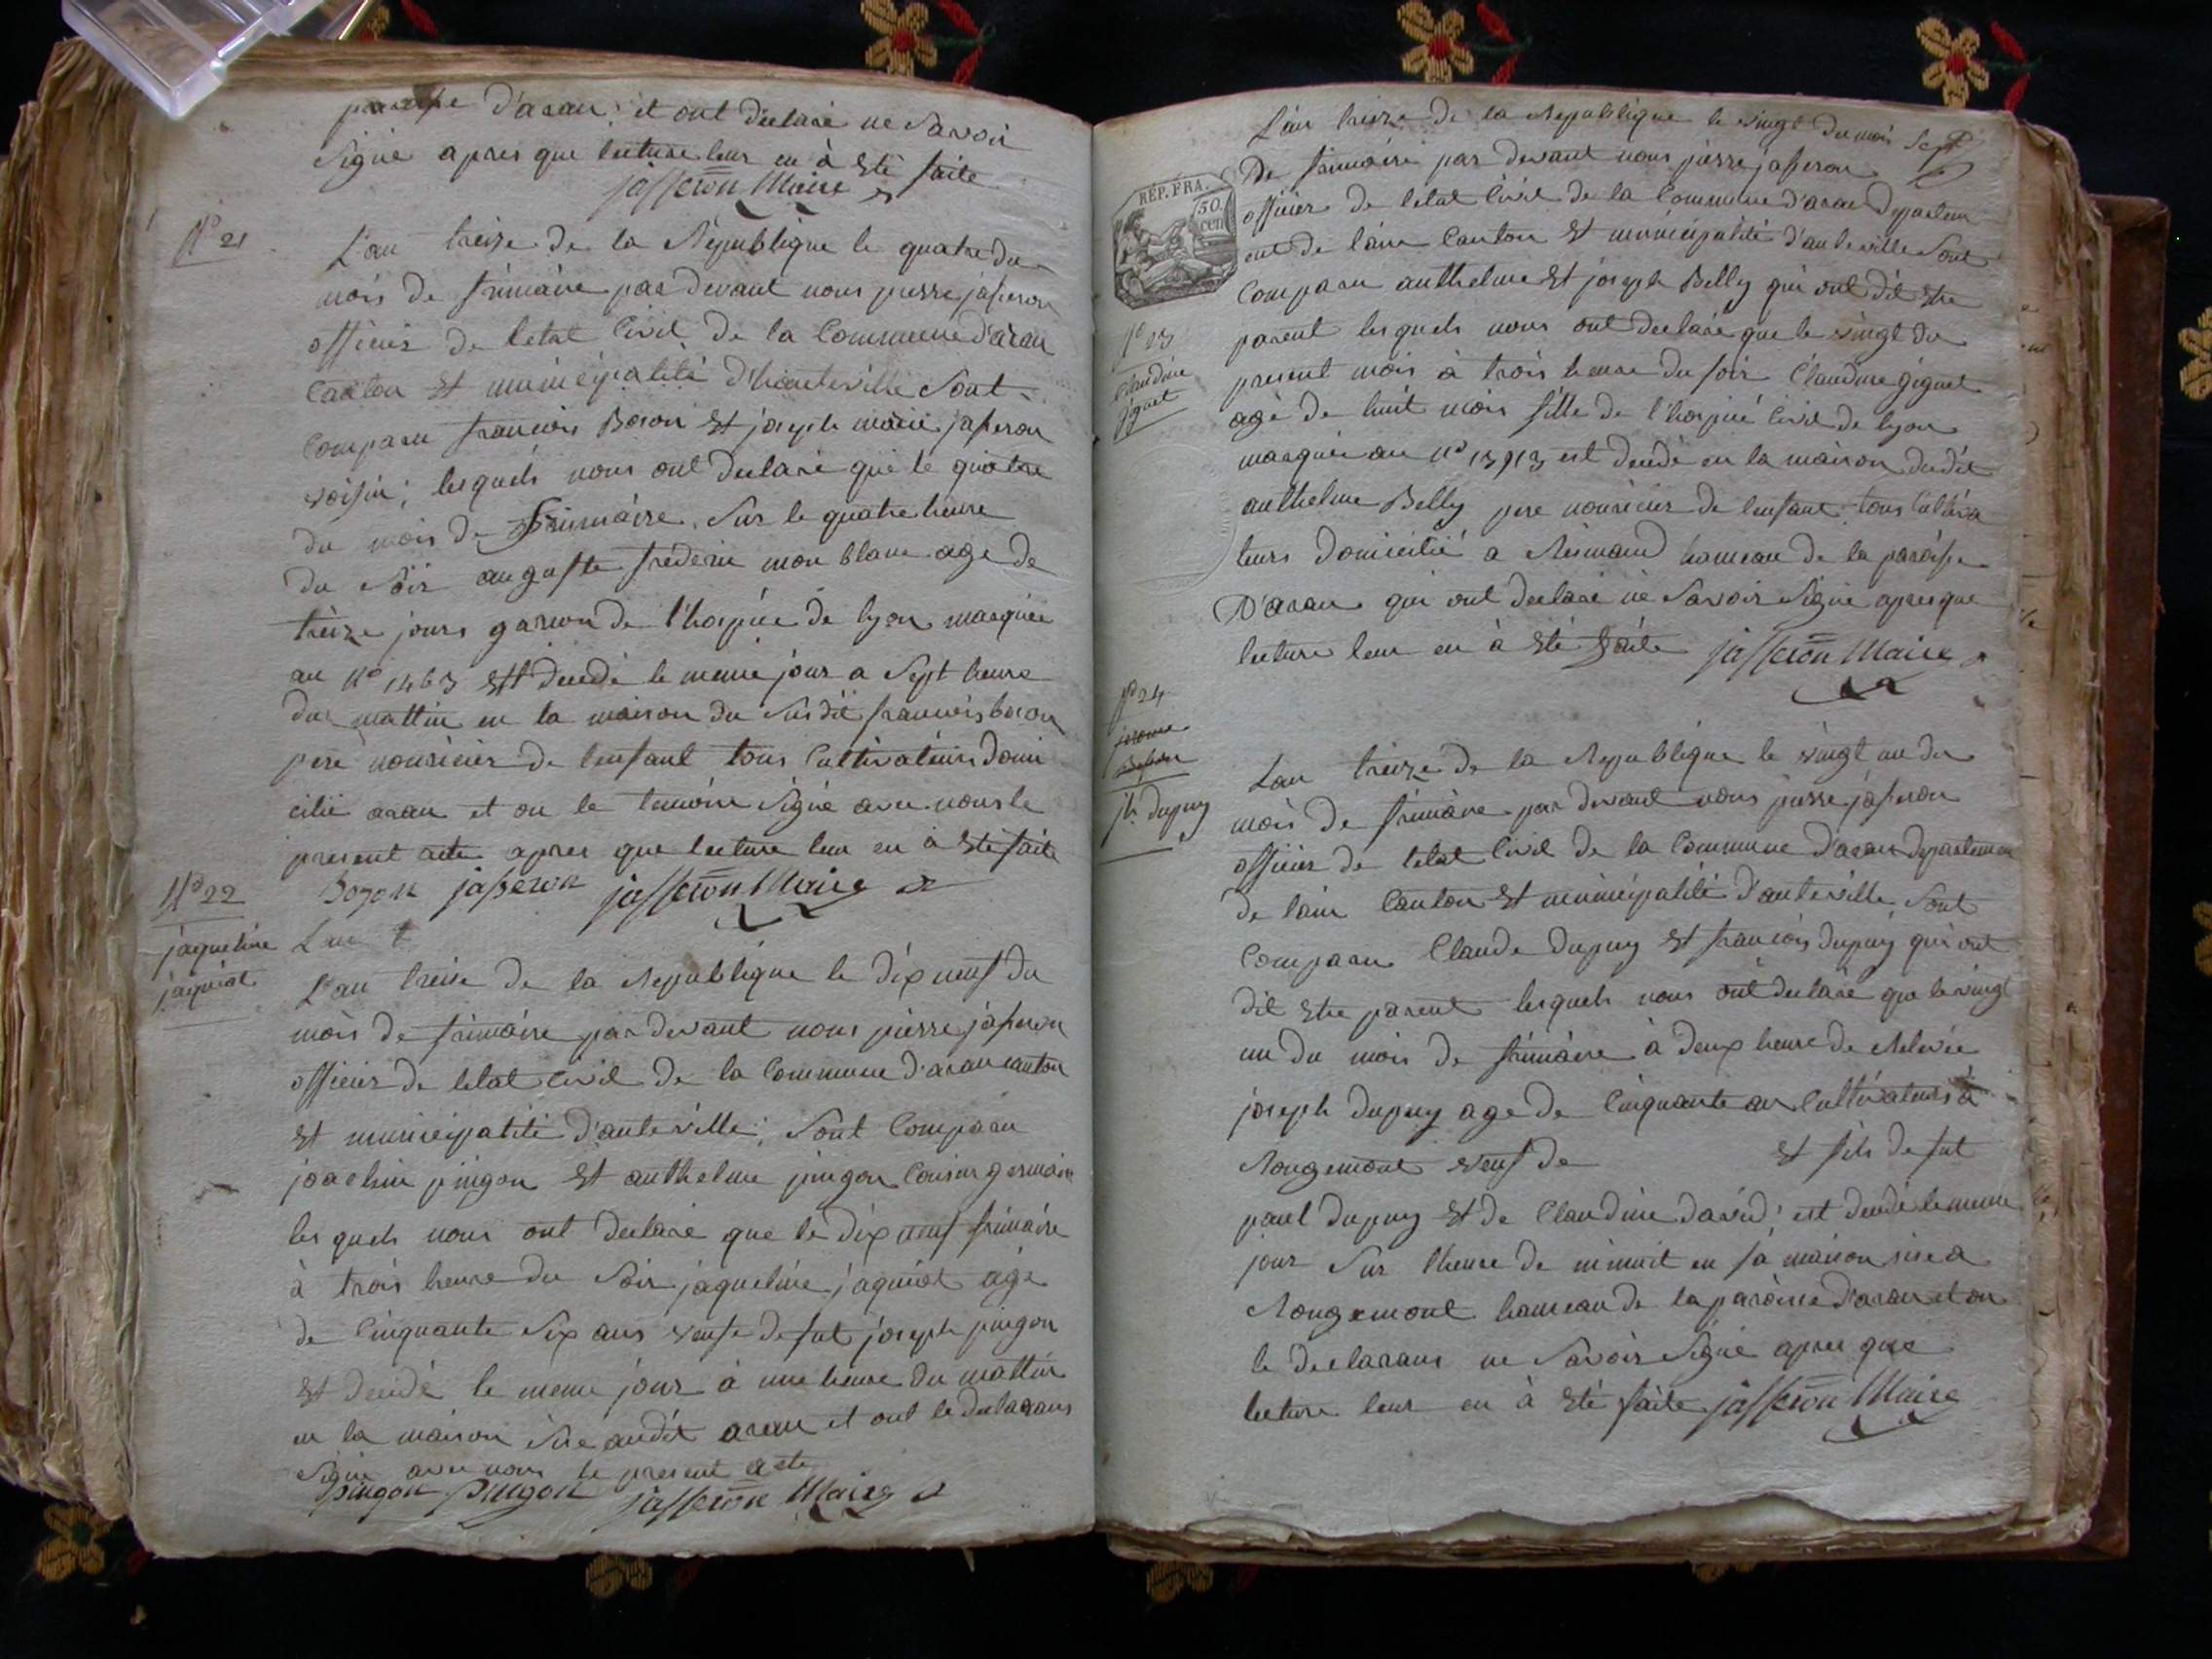 paroisse d'aran; et ont declaré ne Savoir
Signé apres que lecture leur en à Eté faite
jasseron Maire
N° 21
L'an treize de la Republique le quatre du
mois de frimaire par devant nous pierre jasseron
officier de letat Civil de la Commune d'aran
Canton Et municipalité d'hauteville Sont
Comparu francois Boson Et joseph marie jasseron
voisin; lesquels nous ont declaré que le quatre
du mois de frimaire Sur le quatre heure
du Soir auguste frederic mon blanc age de
treize jours garson de l'hospice de lyon marquée
au N° 1463 Est decedé le meme jour a Sept heure
du mattin en la maison du Susdit francois boson
pere nouricier de lenfant tous Cultivateurs domi
cilié aran et on le temoins Signé avec nous le
present acte apres que lecture leur en à Eté faite
Bozon jasseron jasseron Maire
N° 22
jaqueline
jaquiot
L'an t
L'an treise de la Republique le dix neuf du
mois de frimaire par devant nous pierre jasseron
officier de letat civil de la Commune d'aran canton
Et municipalité d'auteville; Sont Comparu
joachin pingon Et anthelme pingon Cousin germain
les quels nous ont declaré que le dix neuf frimaire
à trois heure du Soir jaqueline jaquiot agé
de Cinquante Six ans veuse de fut joseph pingon
Est decedé le meme jour à une heure du mattin
en la maison Sise audit aran et ont le declarans
Signé avec nous le present acte
pingon pingon jasseron Maire
L'an treize de la Republique le vingt du mois Sept
De frimaire par devant nous pierre jasseron
REP. FRA.
50.
cen
officier de letat Civil de la Commune d'aran departem
ent de lain Canton Et municipalité d'auteville Sont
Comparu anthelme Et joseph Belly qui ont dit Etre
N° 23
Claudine
giguet
parent lesquels nous ont declaré que le vingt du
present mois à trois heure du soir Claudine giguet
agé de huit mois fille de l'hospice Civil de lyon
marquée au N° 13913 est decedé en la maison dudit
anthelme Belly pere nouricier de lenfant tous Cultiva
teurs domicilié a Resinand hameau de la paroisse
D'aran qui ont declaré ne Savoir Signé apres que
lecture leur en à Eté faite jasseron Maire
N° 24
jh. dupuy
Lan treize de la Republique le vingt un du
mois de frimaire par devant nous pierre jasseron
officier de letat Civil de la Commune d'aran departemen
de lain Canton Et municipalité d'auteville Sont
Comparu Claude dupuy Et francois dupuy qui ont
dit Etre parent lesquels nous ont declaré que le vingt
un du mois de frimaire à deux heure de Relevée
joseph dupuy age de Cinquante an Cultivateurs à
Rougemont veuf de Et fils de fut
paul dupuy Et de Claudine david; est decedé le meme
jour Sur lheure de minuit en sa maison sise a
Rougemont hameau de la paroisse d'aran et on
le declarans ne Savoir Signé apres que
lecture leur en à Eté faite jasseron Maire